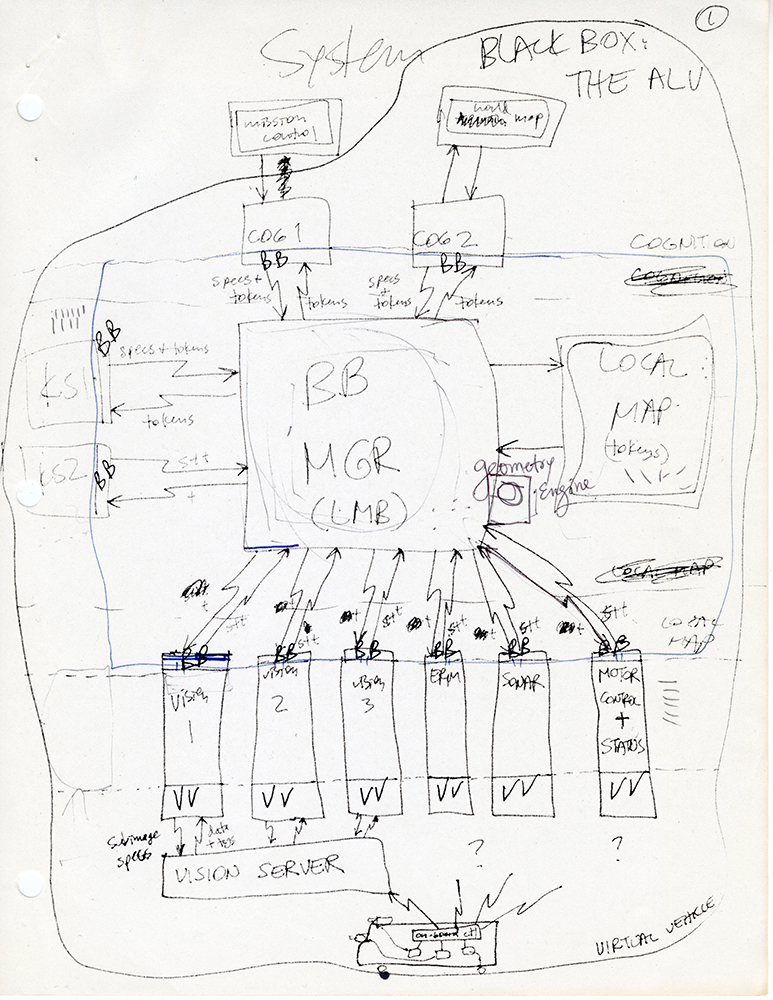 1
System
BLACK BOX:
THE ALV
mission
control
world
map
COG 1
BB
COG 2
BB
COGNITION
specs +
tokens
tokens
specs
+
tokens
tokens
BB
KS1
specs + tokens
tokens
KS2
BB
s++
+
BB
MGR
(LMB)
LOCAL
MAP
(tokens)
geometry
Engine
LOCAL MAP
LOCAL
MAP
+
s++
s++
s++
s++
s++
s++
BB
BB
BB
BB
BB
BB
VISION
1
VISION
2
VISION
3
ERIM
SONAR
MOTOR
CONTROL
+
STATUS
VV
VV
VV
VV
VV
VV
Subimage
specs
data
VISION SERVER
?
?
on-board ctl
VIRTUAL VEHICLE